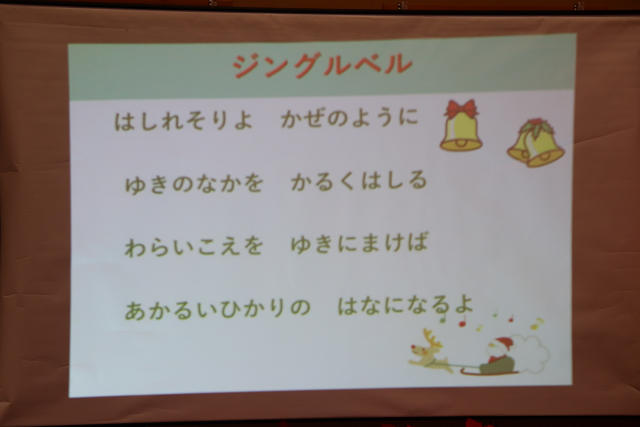 ジングルベル
はしれそりよ　かぜのように
ゆきのなかを　かるくはしる
わらいこえを　ゆきにまけば
あかるいひかりの　はなになるよ